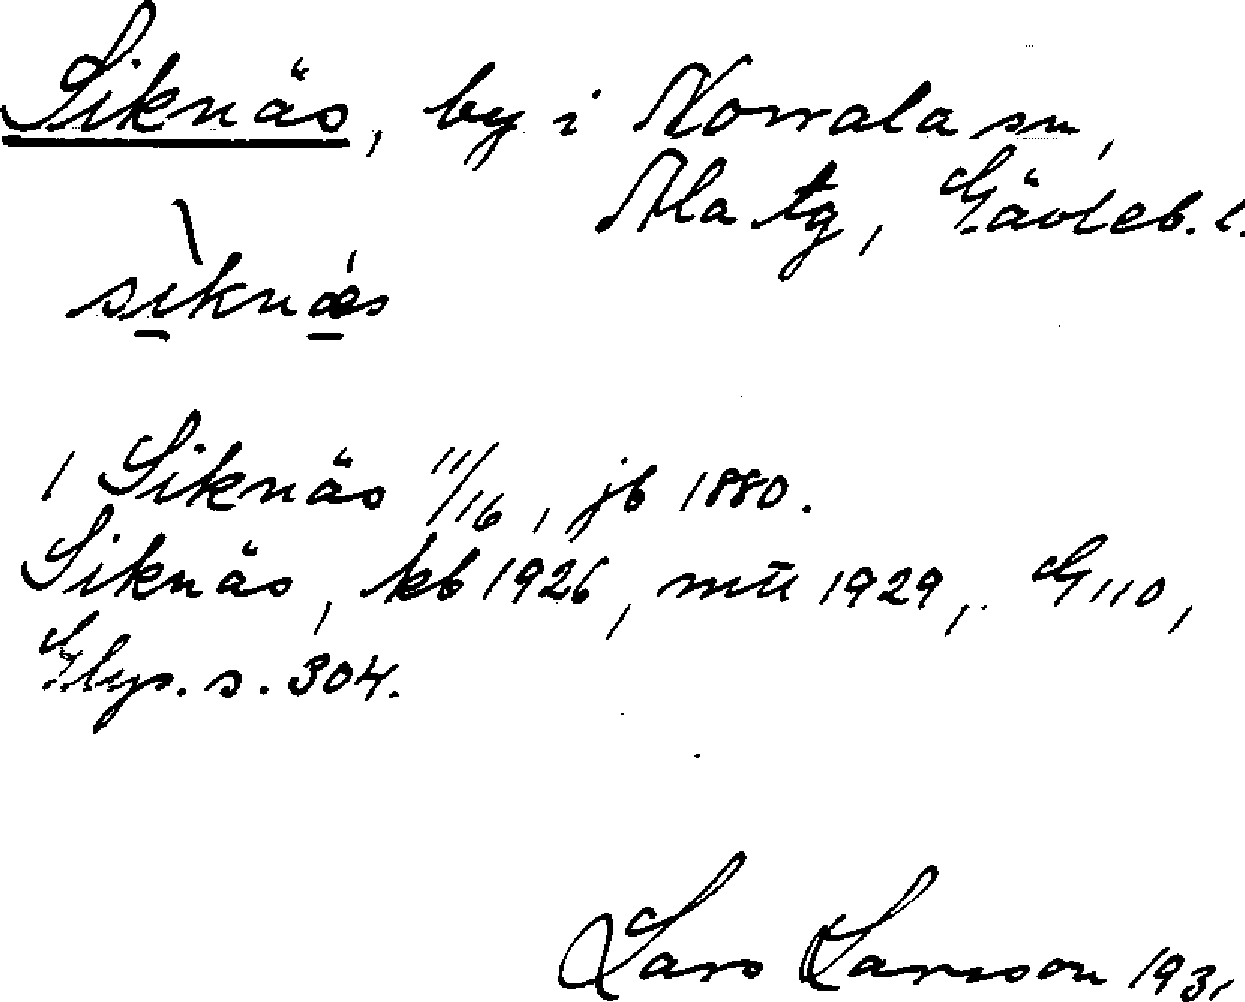 Siknäs, by i Norrala sn,
Ala tg, Gävleb. l.
sìknǽs
1 Siknäs 11/16, jb 1880.
Siknäs, kb 1926, mtl 1929, G 110,
Elys. s. 304.
Lars Larsson 1931